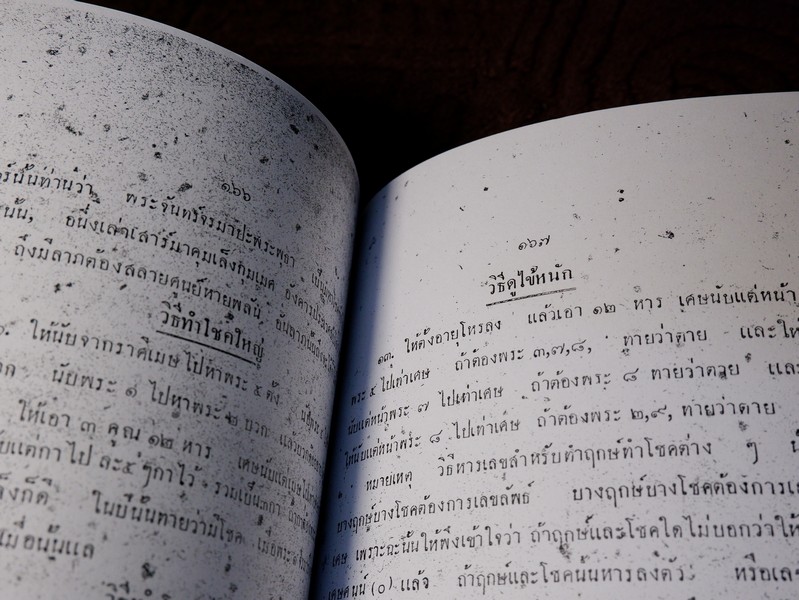 ๑๖๖
ร์นั้นท่านว่า พระจันทร์จรมาปะพระพุธา
นั้น, อนึ่งเล่าเสาร์มาคุมเล็งกุมเมศ อังคาร
ถึงมีลาภต้องสลายศูนย์หายพลัน
วิธีทำโชคใหญ่
ให้นับจากราศีเมษไปหาพระ ๕ ตั้ง
นับพระ ๑ ไปหาพระ ๒ บวก แล้ว
ให้เอา ๓ คูณ ๑๒ หาร เศษนับแต่เมษ
แต่กาไป ละ ๕ ๆ กาไว้ รวมเป็น
ล็งก็ดี ในปีนั้นทายว่ามีโชค เมื่อพระ
เมื่อนั้นแล
๑๖๗
วิธีดูไข้หนัก
๑๓. ให้ตั้งอายุโหรลง แล้วเอา ๑๒ หาร เศษนับแต่หน้า
พระ ๕ ไปเท่าเศษ ถ้าต้องพระ ๓,๗,๘, ทายว่าตาย และให้
นับแต่หน้าพระ ๗ ไปเท่าเศษ ถ้าต้องพระ ๘ ทายว่าตาย และ
ให้นับแต่หน้าพระ ๘ ไปเท่าเศษ ถ้าต้องพระ ๒,๙, ทายว่าตาย
หมายเหตุ วิธีหารเลขสำหรับทำฤกษ์ทำโชคต่าง ๆ
บางฤกษ์บางโชคต้องการเลขลัพธ์ บางฤกษ์บางโชคต้องการ
เศษ เพราะฉะนั้นให้พึงเข้าใจว่า ถ้าฤกษ์และโชคใดไม่บอกว่าให้
เศษศูนย์ (๐) แล้ว ถ้าฤกษ์และโชคนั้นหารลงตัว หรือ